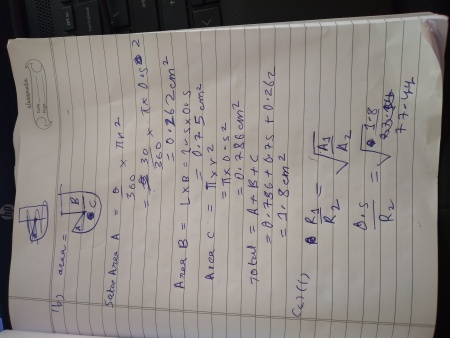 (b) area =
A B C
Sector Area A = θ/360 × πr2
= 30/360 × π × 0.5 2
= 0.262cm2
Area B = L×B = 1.5×0.5
= 0.75cm2
Area C = π×r2
= π×0.5 2
= 0.786cm2
Total = A+B+C
= 0.786+0.75+0.262
= 1.8cm2
(c)(i)
R1/R2 = √A1/A2
0.5/R2 = √1.8/77.44